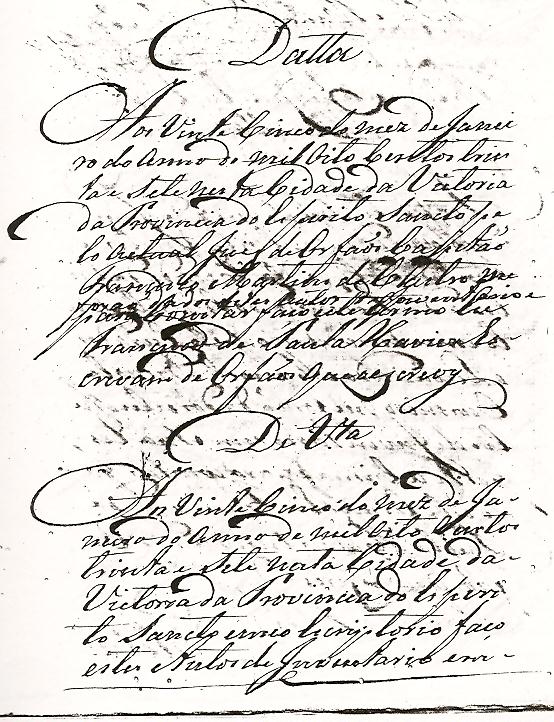 Datta
Aos Vinte Cinco do mez de Janei
ro do Anno de mil Oito Centos trin
ta e Sete nesta Cidade da Victoria
da Provincia do Espirito Sancto pe
lo actual Juis de Orfaõs Capitaõ
Francisco Martins de Castro me
foraõ dados estes autos
para continuar faço este termo Eu
Francisco de Paula Xavier Es
crivam de Orfaos que a escrevy
De Vta
An Vinte Cinco do mez de Ja-
neiro do Anno de mil Oito Centos
trinta e Sete nesta Cidade da
Victoria da Provincia do Espiri
to Sancto em meo Escriptorio faço
estes Autos de Inventario em-